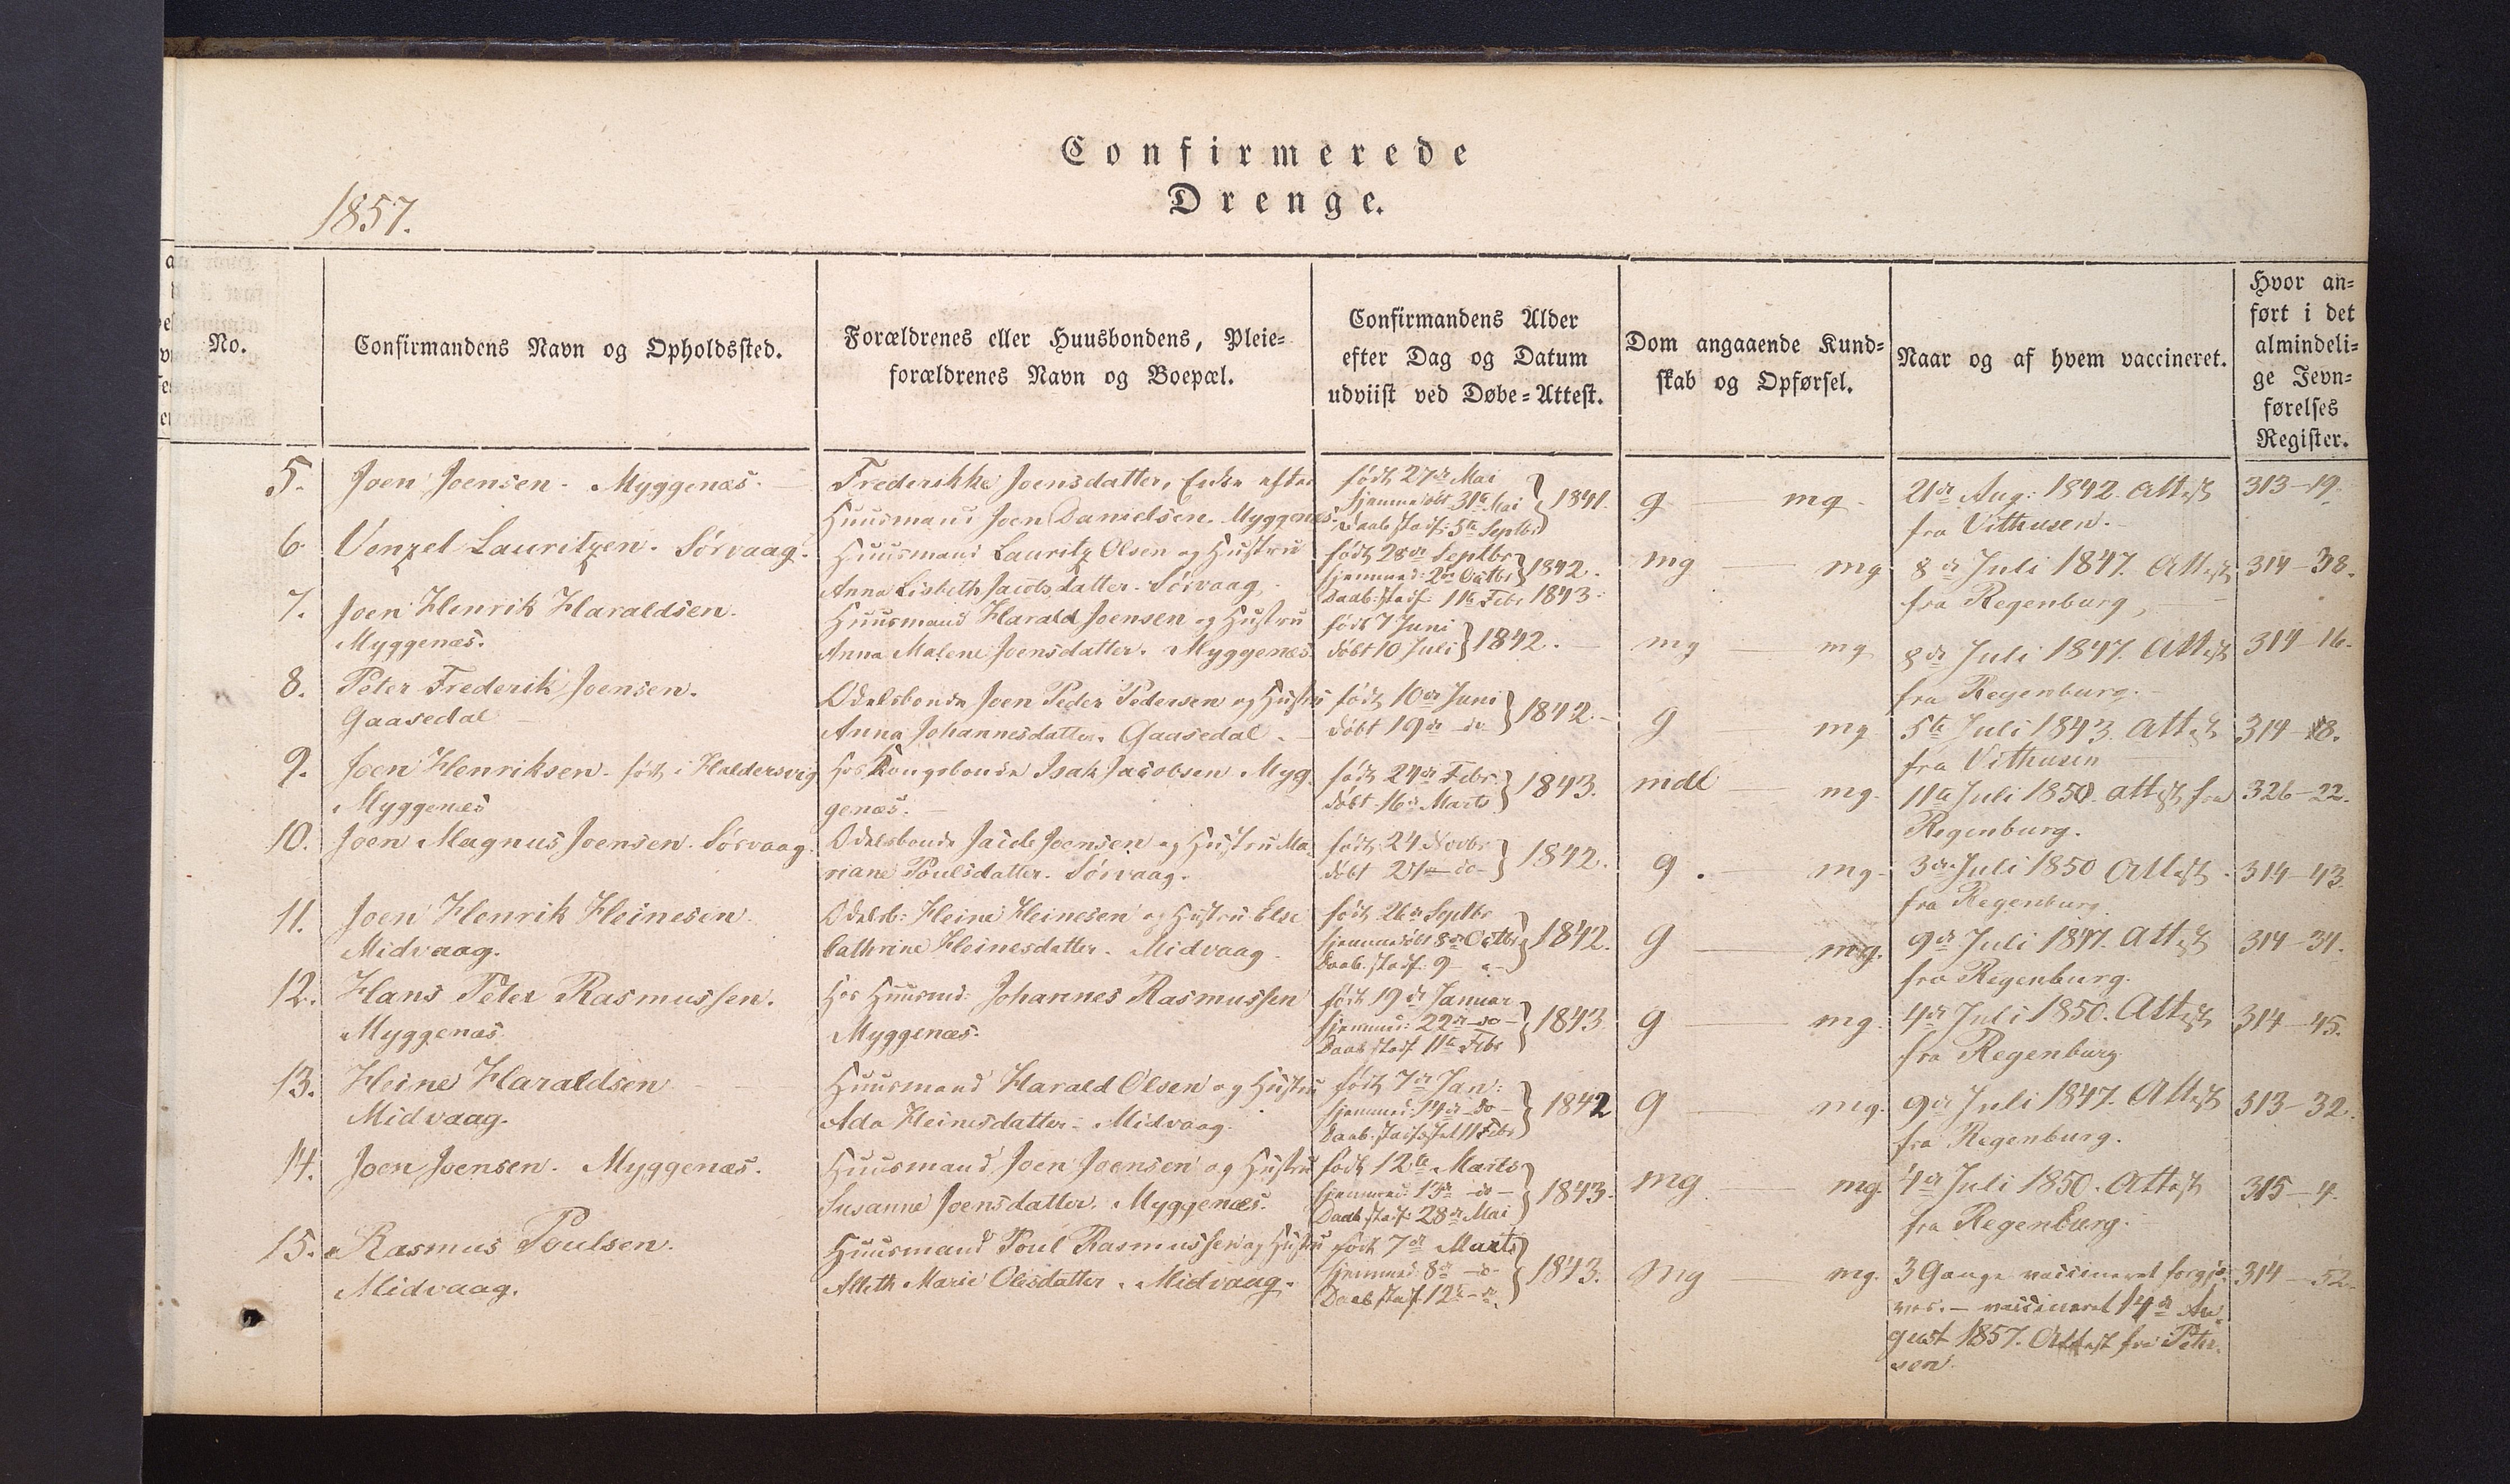 Confirmerede
Drenge.
1857.
No.
Confirmandens Navn og Opholdssted.
Forældrenes eller Huusbondens, Pleie=
forældrenes Navn og Boepæl.
Confirmandens Alder
efter Dag og Datum
udviist ved Døbe=Attest.
Dom angaaende Kund=
skab og Opførsel.
Naar og af hvem vaccineret.
Hvor an=
ført i det
almindeli=
ge Jevn=
førelses
Register.
5. Joen Joensen. Myggenæs.
Frederikke Joensdatter, Enke efter
Huusmand Joen Danielsen. Myggenæs.
født 27de Mai
hjemmedøbt 31te Mai } 1841.
Daab stadf: 5te Septbr
g — mg.
21de Aug: 1842. Attest
fra Vithusen.
313-19.
6. Venzel Lauritzen. Sørvaag.
Huusmand Lauritz Olsen og Hustru
Anna Lisbeth Jacobsdatter. Sørvaag.
født 28de Septbr
hjemmed: 2den Octbr } 1842.
Daab: stadf: 11te Febr 1843.
mg — mg
8de Juli 1847. Attest
fra Regenburg,
314-38.
7. Joen Henrik Haraldsen.
Myggenæs.
Huusmand Harald Joensen og Hustru
Anna Malene Joensdatter. Myggenæs.
født 7 Juni
døbt 10 Juli } 1842.
mg — mg
8de Juli 1847. Attest
fra Regenburg.
314-16.
8. Peter Frederik Joensen.
Gaasedal
Odelsbonde Joen Peder Pedersen og Hustru
Anna Johannesdatter. Gaasedal.
født 10de Juni
døbt 19de do } 1842.
g mg
5te Juli 1843. Attest
fra Vithusen
314-18.
9. Joen Henriksen. født i Haldersvig
Myggenæs
Hos Kongsbonde Isak Jacobsen Myg
genæs.
født 24de Febr:
døbt 16de Marts } 1843.
mdl — mg.
11te Juli 1850. attest fra
Regenburg.
326-22.
10. Joen Magnus Joensen. Sørvaag.
Odelsbonde Jacob Joensen og Hustru Ma
riane Poulsdatter. Sørvaag.
født 24 Novbr
døbt 27 do } 1842.
g. — mg.
3die Juli 1850 Attest
fra Regenburg
314-43.
11. Joen Henrik Heinesen.
Midvaag.
Odelsb: Heine Heinesen og Hustru Else
Cathrine Heinesdatter. Midvaag.
født 26de Septbr
hjemmedøbt 8de Octbr } 1842.
Daab. stadf. 9
g — mg.
9de Juli 1847. Attest
fra Regenburg.
314-34.
12. Hans Peter Rasmussen.
Myggenæs
Hos Huusmd: Johannes Rasmussen
Myggenæs.
født 19de Januar
hjemmed: 22de do } 1843.
Daab stadf 11te Febr
g — mg.
4de Juli 1850. Attest
fra Regenburg
314-45.
13. Heine Haraldsen
Midvaag.
Huusmand Harald Olsen og Hustru
Ada Heinesdatter. Midvaag.
født 7de Jan:
hjemmed: 14de do } 1842
Daab. stadf 11 Febr
g mg.
9de Juli 1847. Attest
fra Regenburg.
313-32.
14. Joen Joensen. Myggenæs.
Huusmand Joen Joensen og Hustru
Susanne Joensdatter. Myggenæs.
født 12te Marts
hjemmed: 13de do } 1843.
Daab. stadf: 28de Mai
mg — mg.
4de Juli 1850. Attest
fra Regenburg.
315-4.
15. Rasmus Poulsen.
Midvaag.
Huusmand Poul Rasmussen og Hustru
Marie Olesdatter. Midvaag.
født 7de Marts
hjemmed: 8de do } 1843.
Daab stadf. 12te
mg mg.
3 Gange vaccineret forgjæ
ves. — vaccineret 14de Au
gust 1857. Attest fra Peter
sen.
314-52.